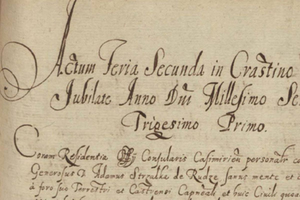 Actum Feria Secunda in Crastino
Jubilate Anno Dni Millesimo Se
Trigesimo Primo.
Coram Residentia Consularis Casimirien personalr
Generosus D Adamus Strzałke de Rudze sanus mente et
a foro suo Terrestri et Castren Capneali, et huic Civili quoad